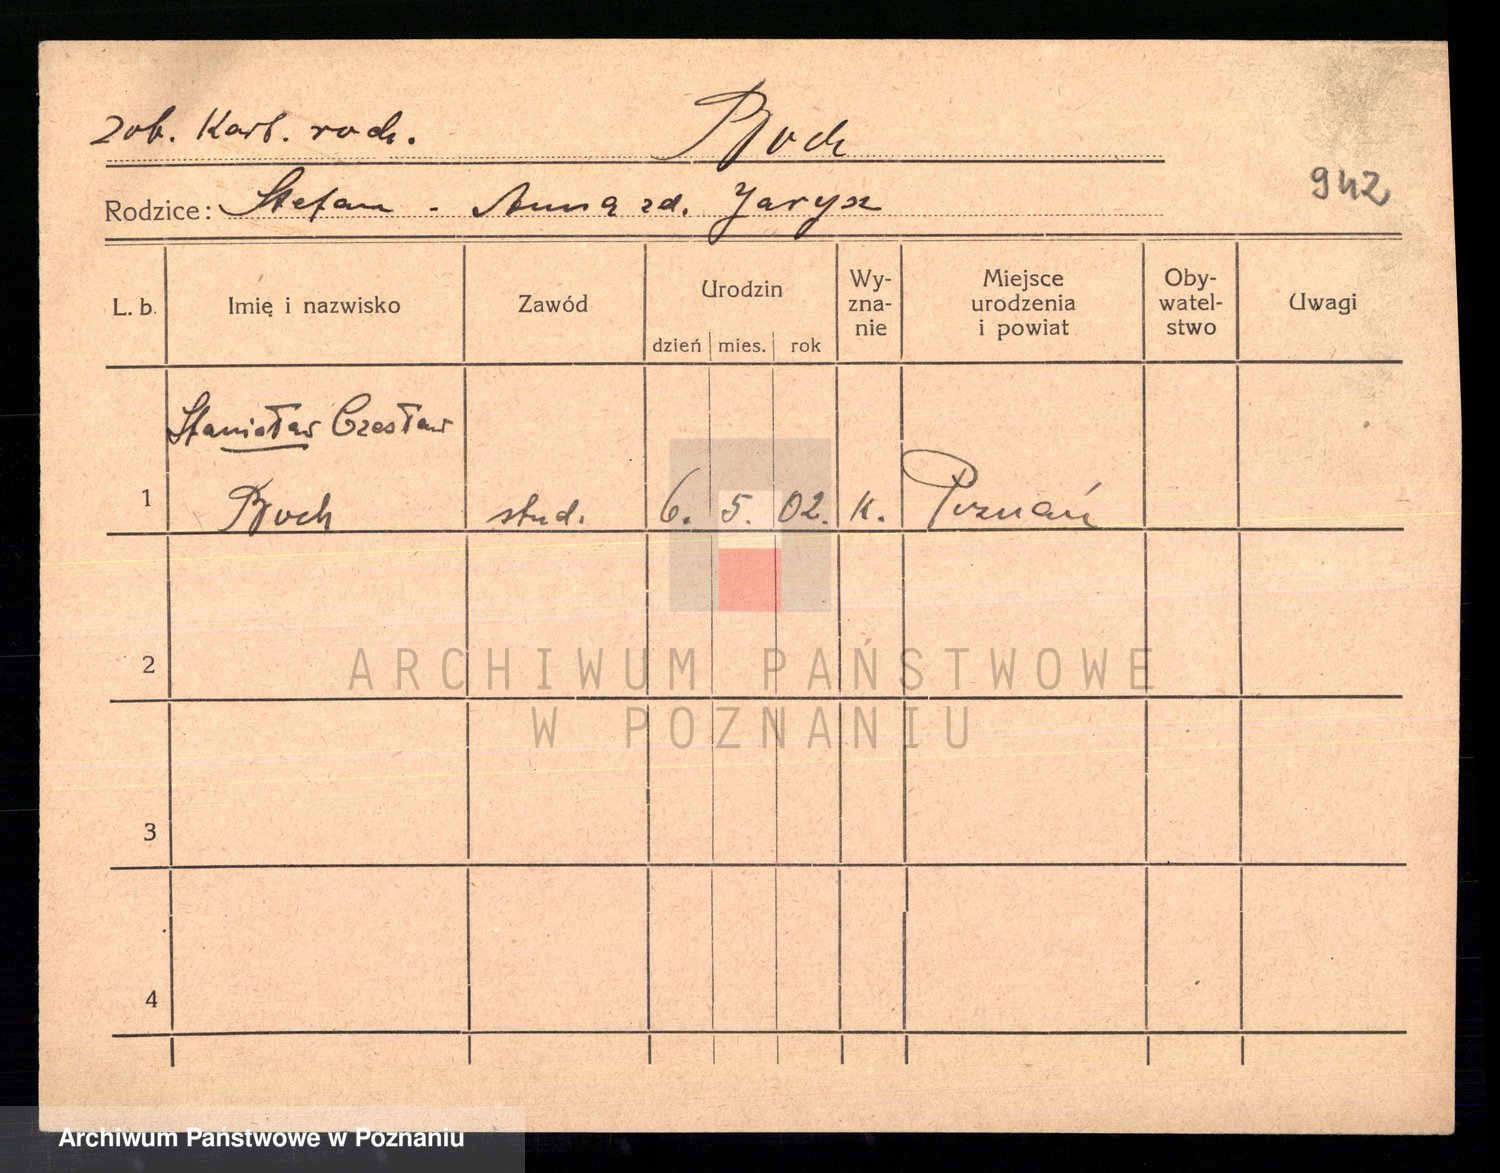 zob. Kart. rodz. Boch
Rodzice: Stefan - Anna zd. Jarysz
942
L. b. Imię i nazwisko Zawód Urodzin dzień mies. rok Wy-zna-nie Miejsce urodzenia i powiat Oby-watel-stwo Uwagi
Stanisław Czesław
1 Boch stud. 6. 5. 02. k. Poznań
2
3
4
ARCHIWUM PAŃSTWOWE
W POZNANIU
Archiwum Państwowe w Poznaniu